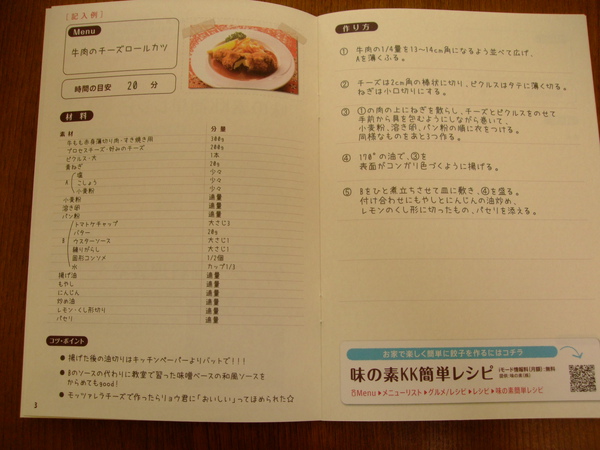 〔記入例〕
Menu
牛肉のチーズロールカツ
時間の目安 20 分
材料
素材 分量
牛もも赤身薄切り肉・すき焼き用 300g
プロセスチーズ・好みのチーズ 200g
ピクルス・大 1本
青ねぎ 20g
A
塩 少々
こしょう 少々
小麦粉 少々
小麦粉 適量
溶き卵 適量
パン粉 適量
B
トマトケチャップ 大さじ3
バター 20g
ウスターソース 大さじ1
練りがらし 大さじ1
固形コンソメ 1/2個
水 カップ1/3
揚げ油 適量
もやし 適量
にんじん 適量
炒め油 適量
レモン・くし形切り 適量
パセリ 適量
コツ・ポイント
● 揚げた後の油切りはキッチンペーパーよりバットで!!!
● Bのソースの代わりに教室で習った味噌ベースの和風ソースを
からめてもgood!
● モッツァレラチーズで作ったらリョウ君に「おいしい」ってほめられた☆
3
作り方
① 牛肉の1/4量を13〜14cm角になるよう並べて広げ、
Aを薄くふる。
② チーズは2cm角の棒状に切り、ピクルスはタテに薄く切る。
ねぎは小口切りにする。
③ ①の肉の上にねぎを散らし、チーズとピクルスをのせて
手前から具を包むようにしながら巻いて、
小麦粉、溶き卵、パン粉の順に衣をつける。
同様なものをあと3つ作る。
④ 170°の油で、③を
表面がコンガリ色づくように揚げる。
⑤ Bをひと煮立ちさせて皿に敷き、④を盛る。
付け合わせにもやしとにんじんの油炒め、
レモンのくし形に切ったもの、パセリを添える。
お家で楽しく簡単に餃子を作るにはコチラ
味の素KK簡単レシピ
iモード情報料(月額):無料
iMenu▶メニューリスト▶グルメ/レシピ▶レシピ▶味の素簡単レシピ